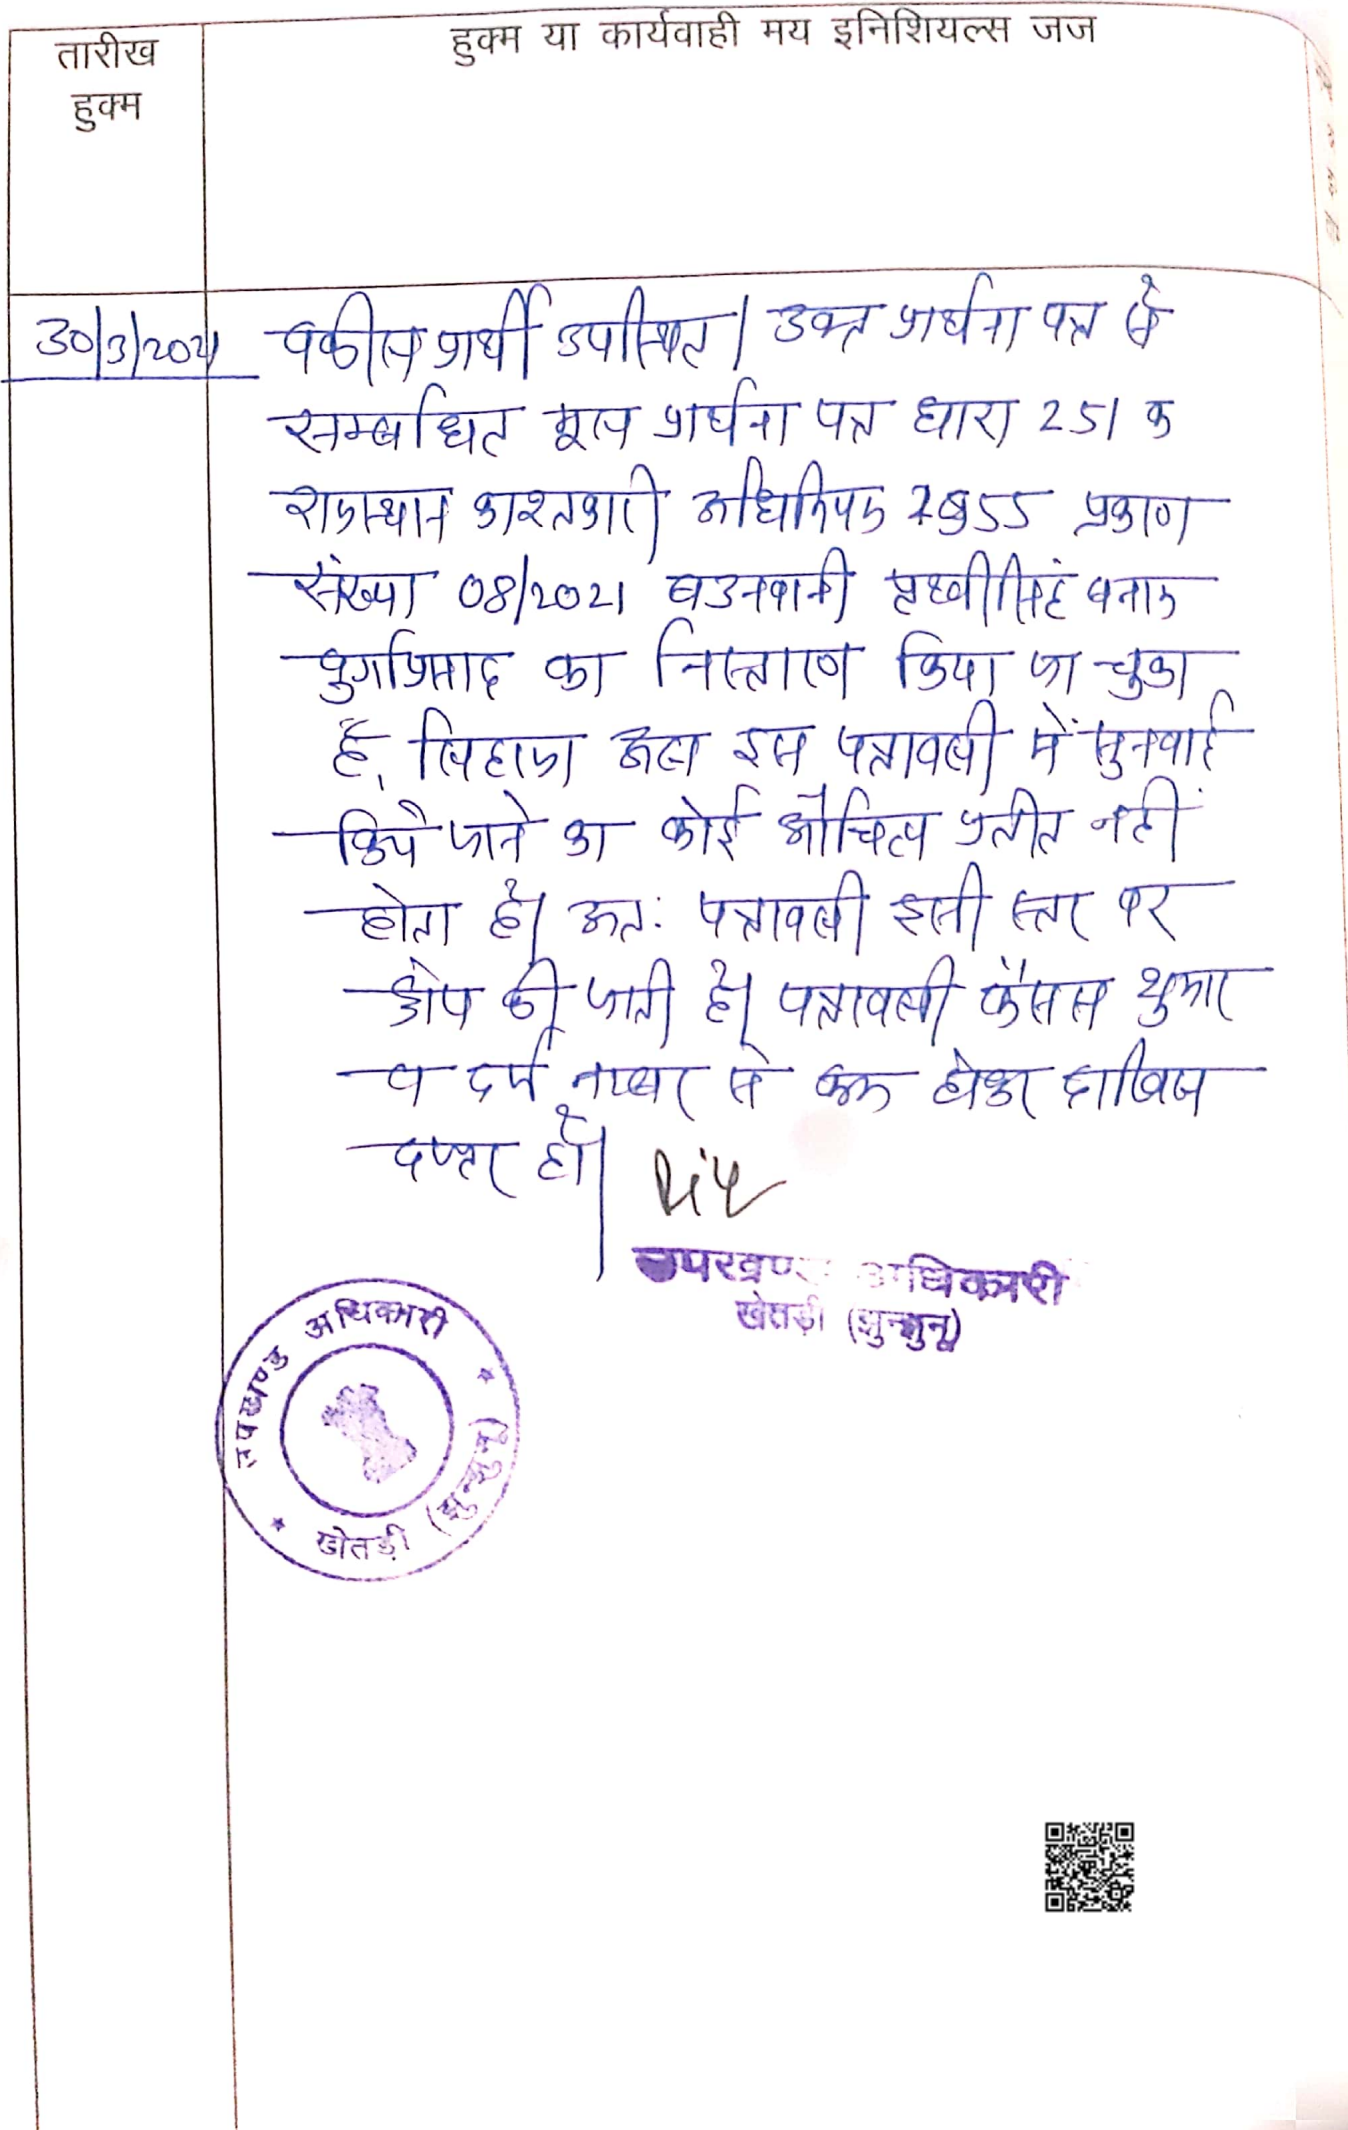 तारीख
हुक्म
हुक्म या कार्यवाही मय इनिशियल्स जज
30/3/2021
वकील प्रार्थी उपस्थित। उक्त प्रार्थना पत्र से
सम्बन्धित मूल प्रार्थना पत्र धारा 251 क
राजस्थान काश्तकारी अधिनियम 1955 प्रकरण
संख्या 08/2021 बउनवानी पृथ्वीसिंह बनाम
का निस्तारण किया जा चुका
है, लिहाजा इस पत्रावली में सुनवाई
किये जाने का कोई औचित्य प्रतीत नहीं
होता है। अत: पत्रावली इसी स्तर पर
ड्रोप की जाती है। पत्रावली फैसल शुमार
व दर्ज नम्बर से कम होकर दाखिल
दफ्तर हो।
उपखण्ड अधिकारी
खेतड़ी (झुन्झुनू)
उपखण्ड अधिकारी
खेतड़ी (झुन्झुनू)